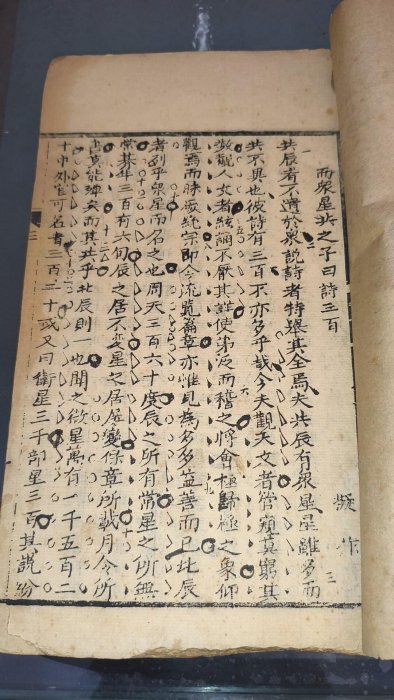 而眾星共之子曰詩三百
擬作
三
共辰者不遺於眾說詩者特舉其全焉夫共辰有眾星星雖多而
共不異也彼詩有三百不亦多乎哉今夫觀天文者管窺莫窮其
數觀人文者絃誦不厭其詳使第泛而稽之惟會極歸極之象仰
觀焉而昧厥統宗即今流覽篇章亦惟見為多多益善而已北辰
者列乎眾星而名之也周天三百六十度辰之所有常星之所無
常朞年三百有六旬辰之居不變星之居屢變保章所載月令所
真能殫矣而其共乎北辰則一也聞之微星萬有一千五百二
十中外官可名者三百二十或又曰衛星三千部星三百其說紛